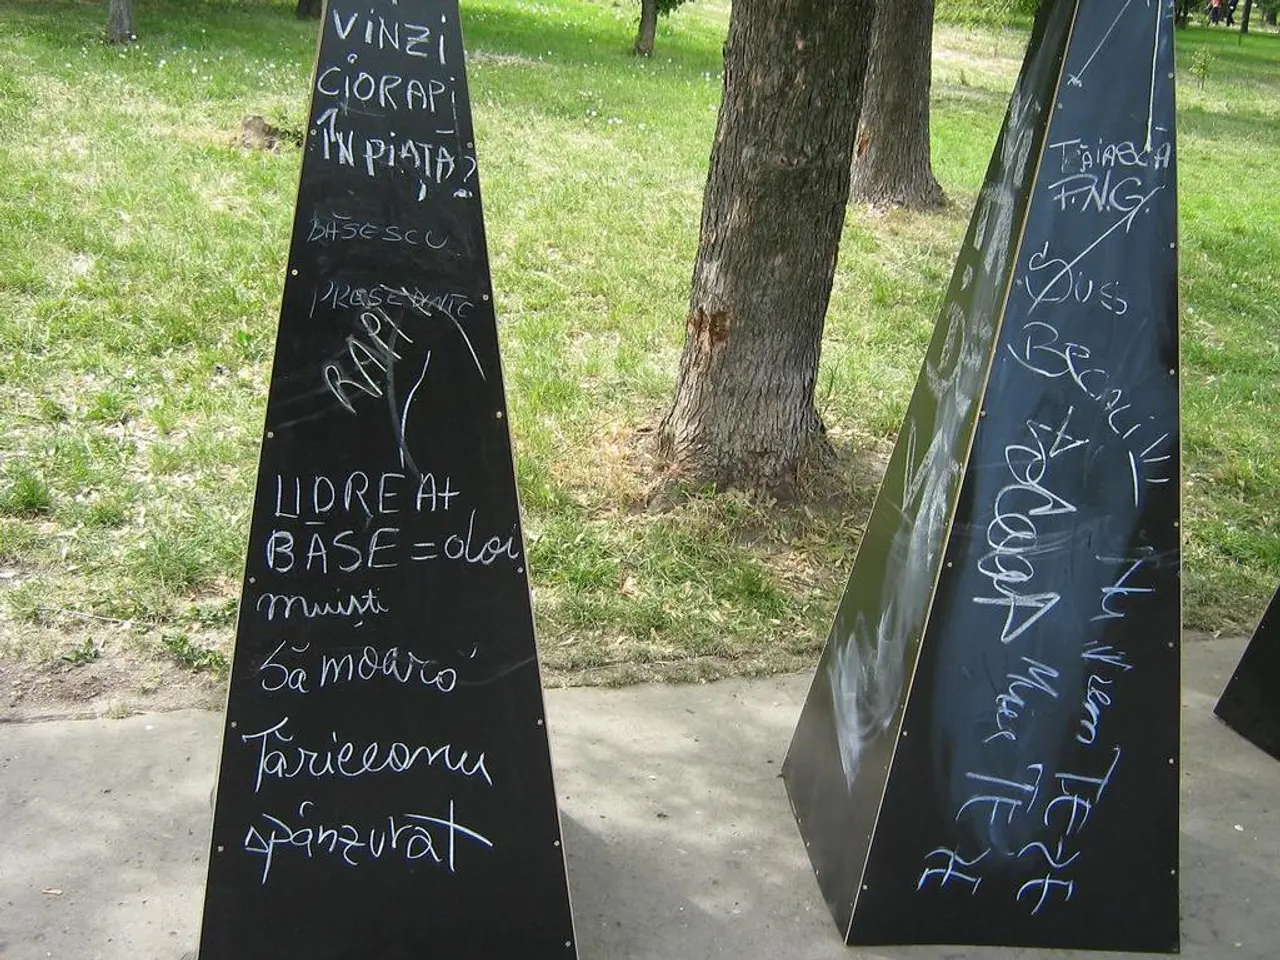 VINZI
CIORAPI
ÎN PIAȚĂ?
BĂSESCU
RAPI
UDREA+
BĂSE = doi
muiști
Să moară
Tăriceanu
spânzurat
TĂIAȚĂ
P.N.G.
SUS
BECALI!!!
Nu Vrem TEZE
Nici TE